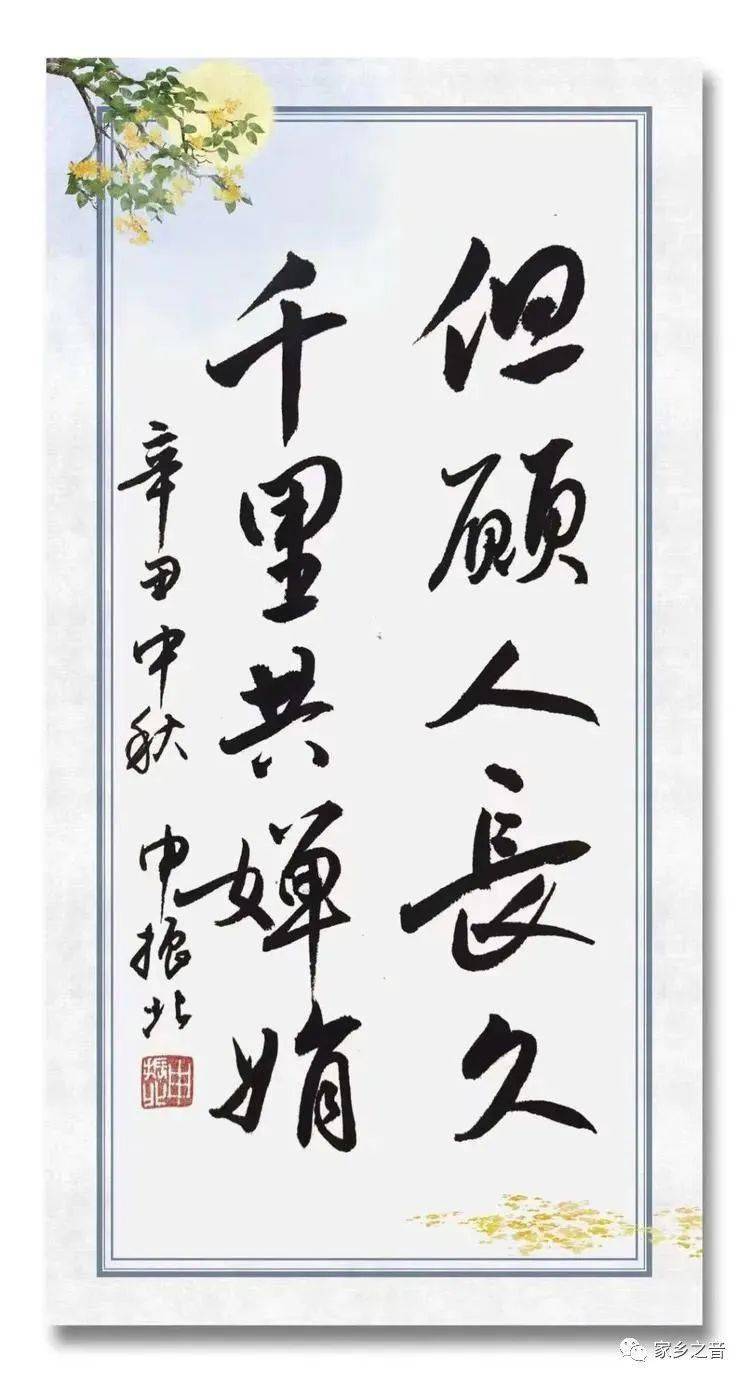 但願人長久
千里共嬋娟
辛丑中秋 申振北
申振北
家乡之音